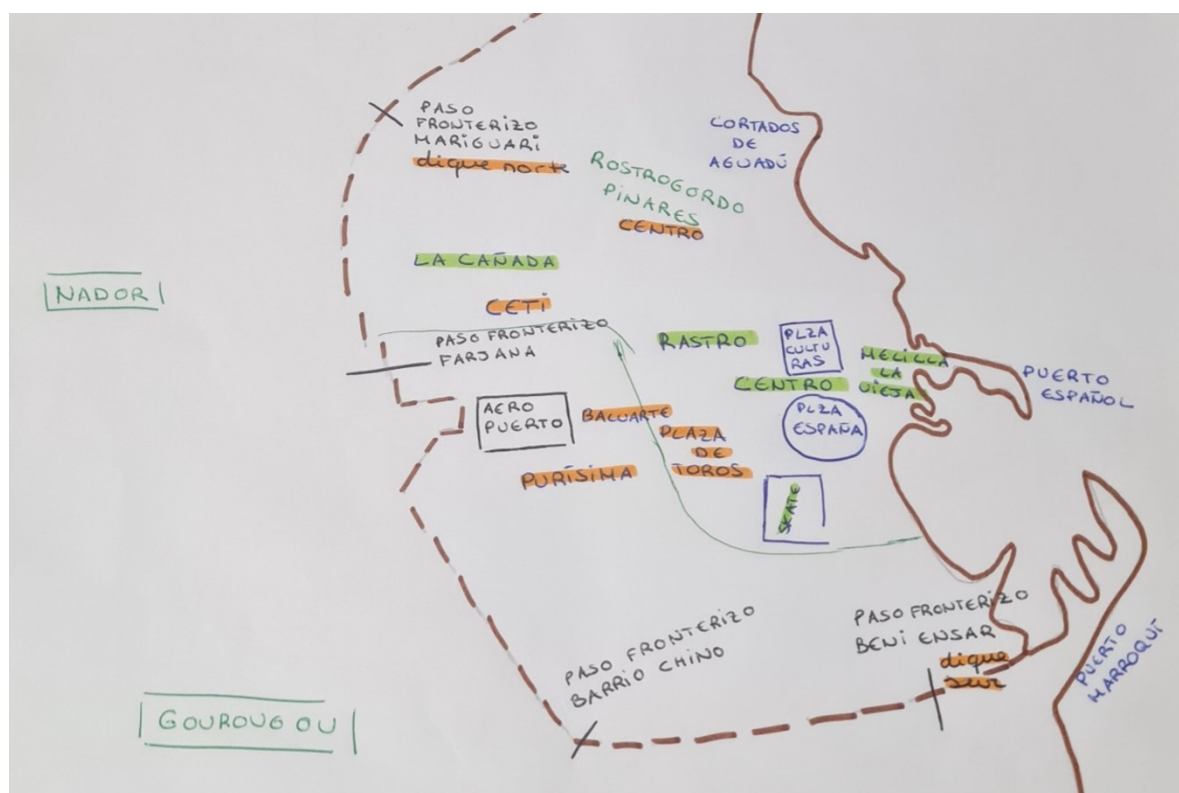 PASO
FRONTERIZO
MARIGUARI
dique norte
CORTADOS
DE
AGUADÚ
ROSTROGORDO
PINARES
CENTRO
LA CAÑADA
NADOR
CETI
PASO FRONTERIZO
FARJANA
RASTRO
PLZA
CULTU
RAS
MELILLA
LA
VIEJA
CENTRO
PUERTO
ESPAÑOL
AERO
PUERTO
BALUARTE
PLZA
ESPAÑA
PLAZA
DE
TOROS
PURÍSIMA
SKATE
PASO FRONTERIZO
BARRIO CHINO
PASO FRONTERIZO
BENI ENSAR
dique
sur
PUERTO
MARROQUÍ
GOUROUGOU